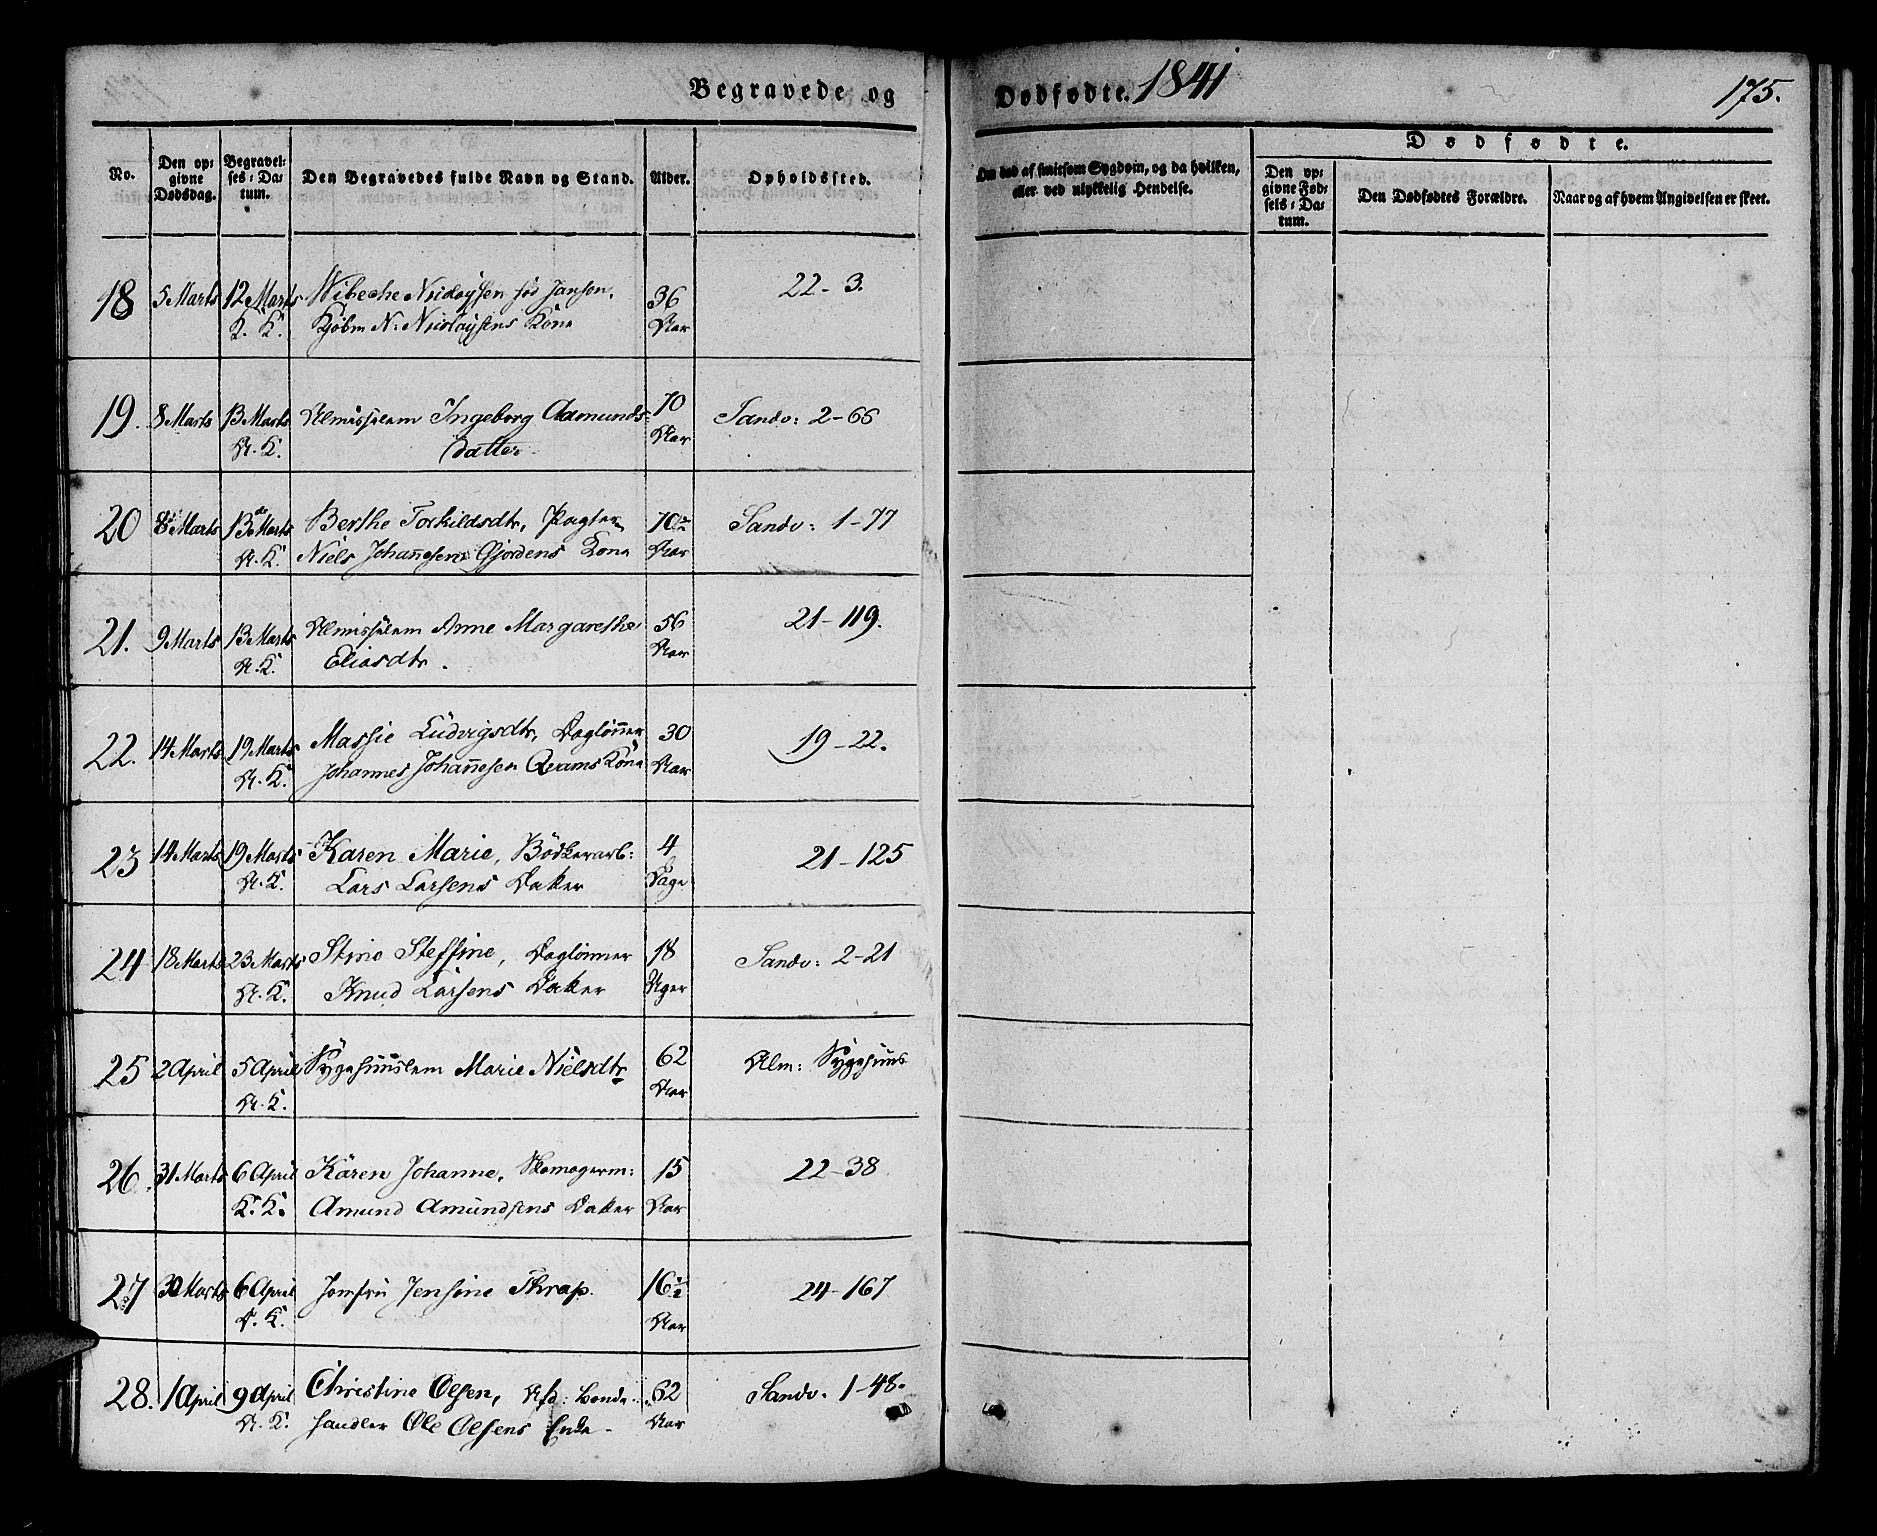 Begravede og
Dødfødte. 1841
175.
No.
Den op=
givne
Dødsdag.
Begravel=
ses=Da=
tum.
Den Begravedes fulde Navn og Stand.
Alder.
Opholdssted.
Om død af smitsom Sygdom, og da hvilken,
eller ved ulykkelig Hendelse.
Dødfødte.
Den op=
givne Fød=
sels=Da=
tum.
Den Dødfødtes Forældre.
Naar og af hvem Angivelsen er skeet.
18 5 Marts 12 Marts Wibeche Nicolaysen fød Janson. 36 22-3.
K. K. Kjøbm N: Nicolaysens Kone Aar
19. 8 Marts 13 Marts Almisselem Ingeborg Aamunds= 70 Sandv: 2-66
N. K. datter Aar
20 8 Marts 13 Marts Berthe Torkildsdtr, Pagter 70½ Sandv: 1-77
N. K. Niels Johannesen Gjordens Kone Aar
21. 9 Marts 13 Marts Almisselem Anne Margarethe 56 21-119.
N. K. Eliasdtr. Aar
22. 14 Marts 19 Marts Massie Ludvigsdtr, Daglønner 30 19-22.
N. K. Johannes Johannesen Qvams Kone Aar
23 14 Marts 19 Marts Karen Marie, Bødkerarb: 4 21-125
N. K. Lars Larsens Datter Dage
24 18 Marts 23 Marts Stine Steffine, Daglønner 18 Sandv: 2-21
N. K. Knud Larsens Datter Uger
25 2 April 5 April Sygehuuslem Marie Nielsdtr 62 Alm: Sygehuus
N. K. Aar
26. 31 Marts 6 April Karen Johanne, Skomagerm: 15 22-38
K. K. Amund Amundsens Datter Aar
27 30 Marts 6 April Jomfru Jensine Thrap. 16½ 24-167
D. K. Aar
28. 1 April 9 April Christine Olsen, Afd: Bonde- 62 Sandv. 1-48.
N. K. handler Ole Olsens Enke. Aar